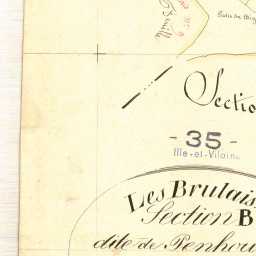 Sectio
- 35 -
Ille-et-Vilaine
Les Brulais
Section B
dite de Penhou